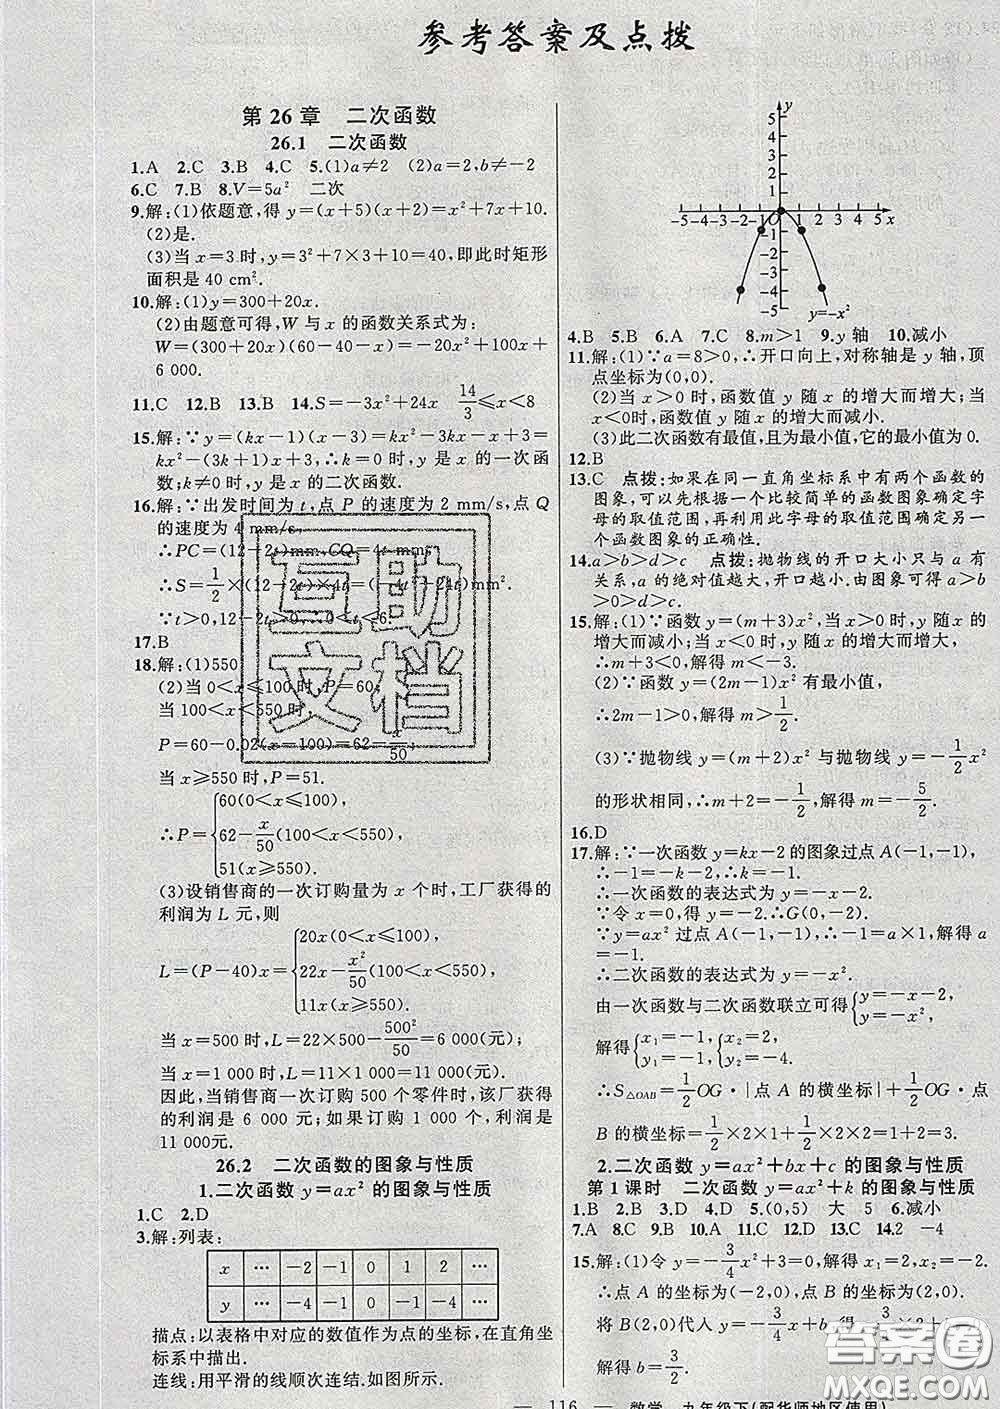 参考答案及点拨
第26章 二次函数
26.1 二次函数
1.A 2.C 3.B 4.C 5.(1)a≠2 (2)a=2,b≠-2
6.C 7.B 8.V=5a² 二次
9.解:(1)依题意,得 y=(x+5)(x+2)=x²+7x+10.
(2)是.
(3)当 x=3 时,y=3²+7×3+10=40,即此时矩形
面积是 40 cm².
10.解:(1)y=300+20x.
(2)由题意可得,W 与 x 的函数关系式为:
W=(300+20x)(60-40-x)=-20x²+100x+
6 000.
11.C 12.B 13.B 14.S=-3x²+24x 14/3≤x<8
15.解:∵y=(kx-1)(x-3)=kx²-3kx-x+3=
kx²-(3k+1)x+3,∴k=0 时,y 是 x 的一次函
数;k≠0 时,y 是 x 的二次函数.
16.解:∵出发时间为 t,点 P 的速度为 2 mm/s,点 Q
的速度为 4 mm/s,
∴PC=(12-2t)mm,CQ=4t mm.
∴S=1/2×(12-2t)×4t=(-4t²+24t)mm².
∵t>0,12-2t>0,∴0<t<6.
17.B
18.解:(1)550
(2)当 0<x≤100 时,P=60;
当 100<x<550 时,
P=60-0.02(x-100)=62-x/50;
当 x≥550 时,P=51.
∴P={60(0<x≤100),
62-x/50(100<x<550),
51(x≥550).
(3)设销售商的一次订购量为 x 个时,工厂获得的
利润为 L 元,则
L=(P-40)x={20x(0<x≤100),
22x-x²/50(100<x<550),
11x(x≥550).
当 x=500 时,L=22×500-500²/50=6 000(元);
当 x=1 000 时,L=11×1 000=11 000(元).
因此,当销售商一次订购 500 个零件时,该厂获得
的利润是 6 000 元;如果订购 1 000 个,利润是
11 000元.
26.2 二次函数的图象与性质
1.二次函数 y=ax² 的图象与性质
1.C 2.D
3.解:列表:
x … -2 -1 0 1 2 …
y … -4 -1 0 -1 -4 …
描点:以表格中对应的数值作为点的坐标,在直角坐
标系中描出.
连线:用平滑的线顺次连结.如图所示.
y
5
4
3
2
1
-5 -4 -3 -2 -1 O 1 2 3 4 5 x
-1
-2
-3
-4
-5
y=-x²
4.B 5.B 6.A 7.C 8.m>1 9.y 轴 10.减小
11.解:(1)∵a=8>0,∴开口向上,对称轴是 y 轴,顶
点坐标为(0,0).
(2)当 x>0 时,函数值 y 随 x 的增大而增大;当
x<0时,函数值 y 随 x 的增大而减小.
(3)此二次函数有最值,且为最小值,它的最小值为 0.
12.B
13.C 点拨:如果在同一直角坐标系中有两个函数的
图象,可以先根据一个比较简单的函数图象确定字
母的取值范围,再利用此字母的取值范围确定另一
个函数图象的正确性.
14.a>b>d>c 点拨:抛物线的开口大小只与 a 有
关系,a 的绝对值越大,开口越小.由图象可得 a>b
>0>d>c.
15.解:(1)∵函数 y=(m+3)x²,当 x>0时,y 随x的
增大而减小;当 x<0 时,y随 x 的增大而增大,
∴m+3<0,解得 m<-3.
(2)∵函数 y=(2m-1)x² 有最小值,
∴2m-1>0,解得 m>1/2.
(3)∵抛物线 y=(m+2)x² 与抛物线 y=-1/2x²
的形状相同,∴m+2=-1/2,解得 m=-5/2.
16.D
17.解:∵一次函数 y=kx-2 的图象过点 A(-1,-1),
∴-1=-k-2,∴k=-1.
∴一次函数的表达式为 y=-x-2.
∵令 x=0,得 y=-2.∴G(0,-2).
∵y=ax² 过点 A(-1,-1),∴-1=a×1,解得 a
=-1.
∴二次函数的表达式为 y=-x².
由一次函数与二次函数联立可得{y=-x-2,
y=-x²,
解得{x₁=-1, {x₂=2,
y₁=-1, y₂=-4.
∴S△OAB=1/2OG·|点 A 的横坐标|+1/2OG·点
B 的横坐标=1/2×2×1+1/2×2×2=3.
2.二次函数 y=ax²+bx+c 的图象与性质
第 1 课时 二次函数 y=ax²+k 的图象与性质
1.B 2.B 3.D 4.D 5.(0,5) 大 5 6.减小
7.A 8.C 9.B 10.A 11.C 12.D 13.C 14.2 -4
15.解:(1)令 y=-3/4x²+3=0,解得 x₁=2,x₂=-2.
∴点 A 的坐标为(-2,0),点 B 的坐标为(2,0).
将 B(2,0)代入 y=-3/4x+b,得
解得 b=3/2.
— 116 — 数学 九年级下(配华师地区使用)
互助
文档
答案圈
MXQE.COM